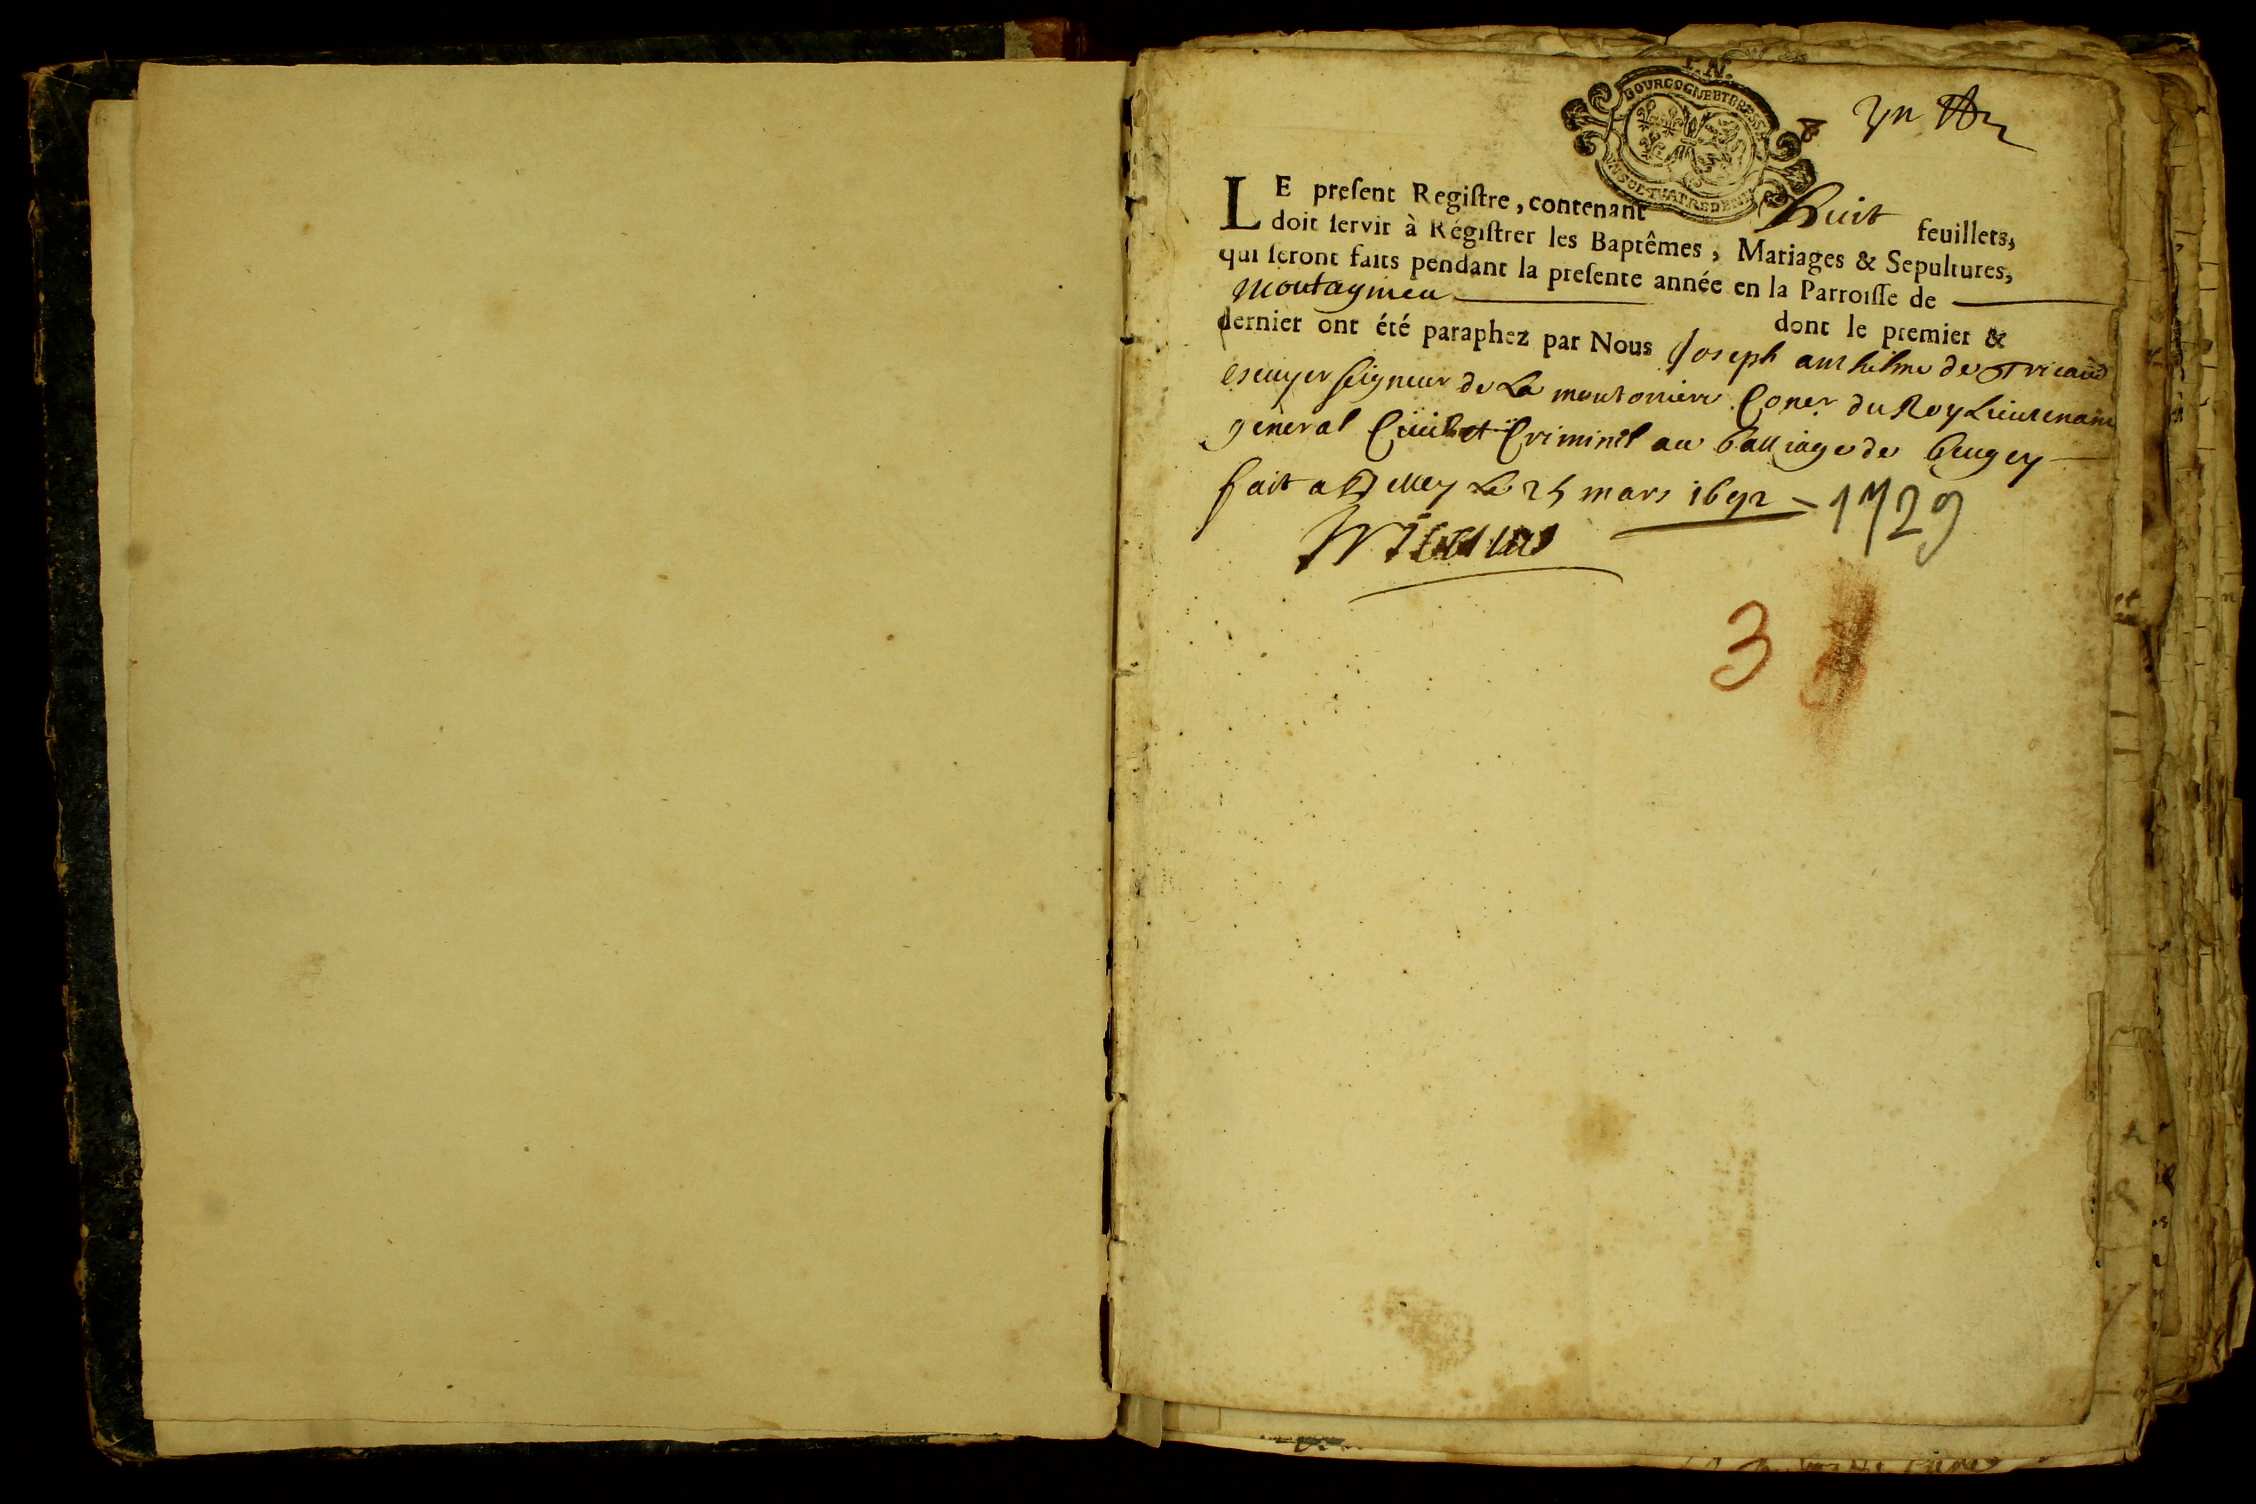 BOURGOGNE ET BRESSE
LE preſent Regiſtre, contenant huit feuillets,
doit ſervir à Regiſtrer les Baptêmes, Mariages & Sepultures,
qui ſeront faits pendant la preſente année en la Parroiſſe de
Montagnieu dont le premier &
dernier ont été paraphez par Nous Joseph anthelme de Tricaud
escuyer seigneur de La moutonniere Coner du Roy Lieutenant
general Civil et Criminel au balliage de beugey
fait a Belley le 25 mars 1692 1729
3